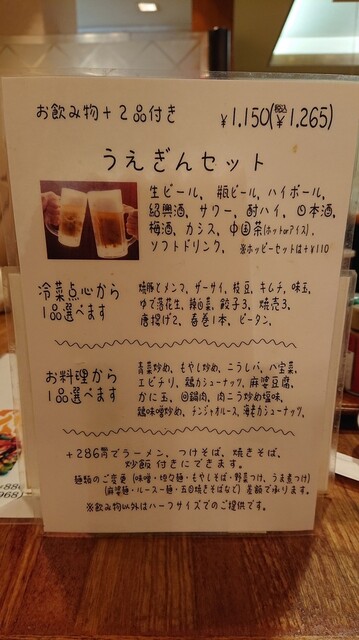 お飲み物+2品付き ¥1,150(税込¥1,265)
うえぎんセット
生ビール、瓶ビール、ハイボール、
紹興酒、サワー、酎ハイ、日本酒、
梅酒、カシス、中国茶(ホットorアイス)、
ソフトドリンク、 ※ホッピーセットは+¥110
冷菜点心から
1品選べます
焼豚とメンマ、ザーサイ、枝豆、キムチ、味玉、
ゆで落花生、辣白菜、餃子3、焼売3、
唐揚げ2、春巻1本、ピータン、
お料理から
1品選べます
青菜炒め、もやし炒め、ニラレバ、八宝菜、
エビチリ、鶏カシューナッツ、麻婆豆腐、
かに玉、回鍋肉、肉ニラ炒め塩味、
鶏味噌炒め、チンジャオルース、海老カシューナッツ、
+286円でラーメン、つけそば、焼きそば、
炒飯 付きにできます。
麺類のご変更 (味噌・坦々麺・もやしそば・野菜つけ、うま煮つけ)
(麻婆麺・ルースー麺・五目焼きそばなど) 差額で承ります。
※飲み物以外はハーフサイズでのご提供です。